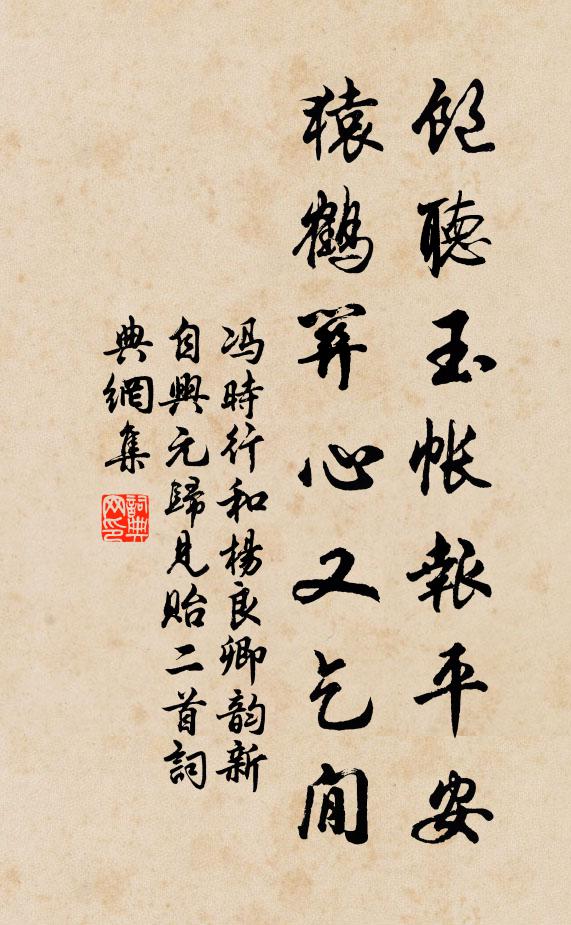 飽聽玉帳報平安
猿鶴關心又乞閒
馮時行和楊良卿韵新
自興元歸見貽二首詞
典網集
詞典网印